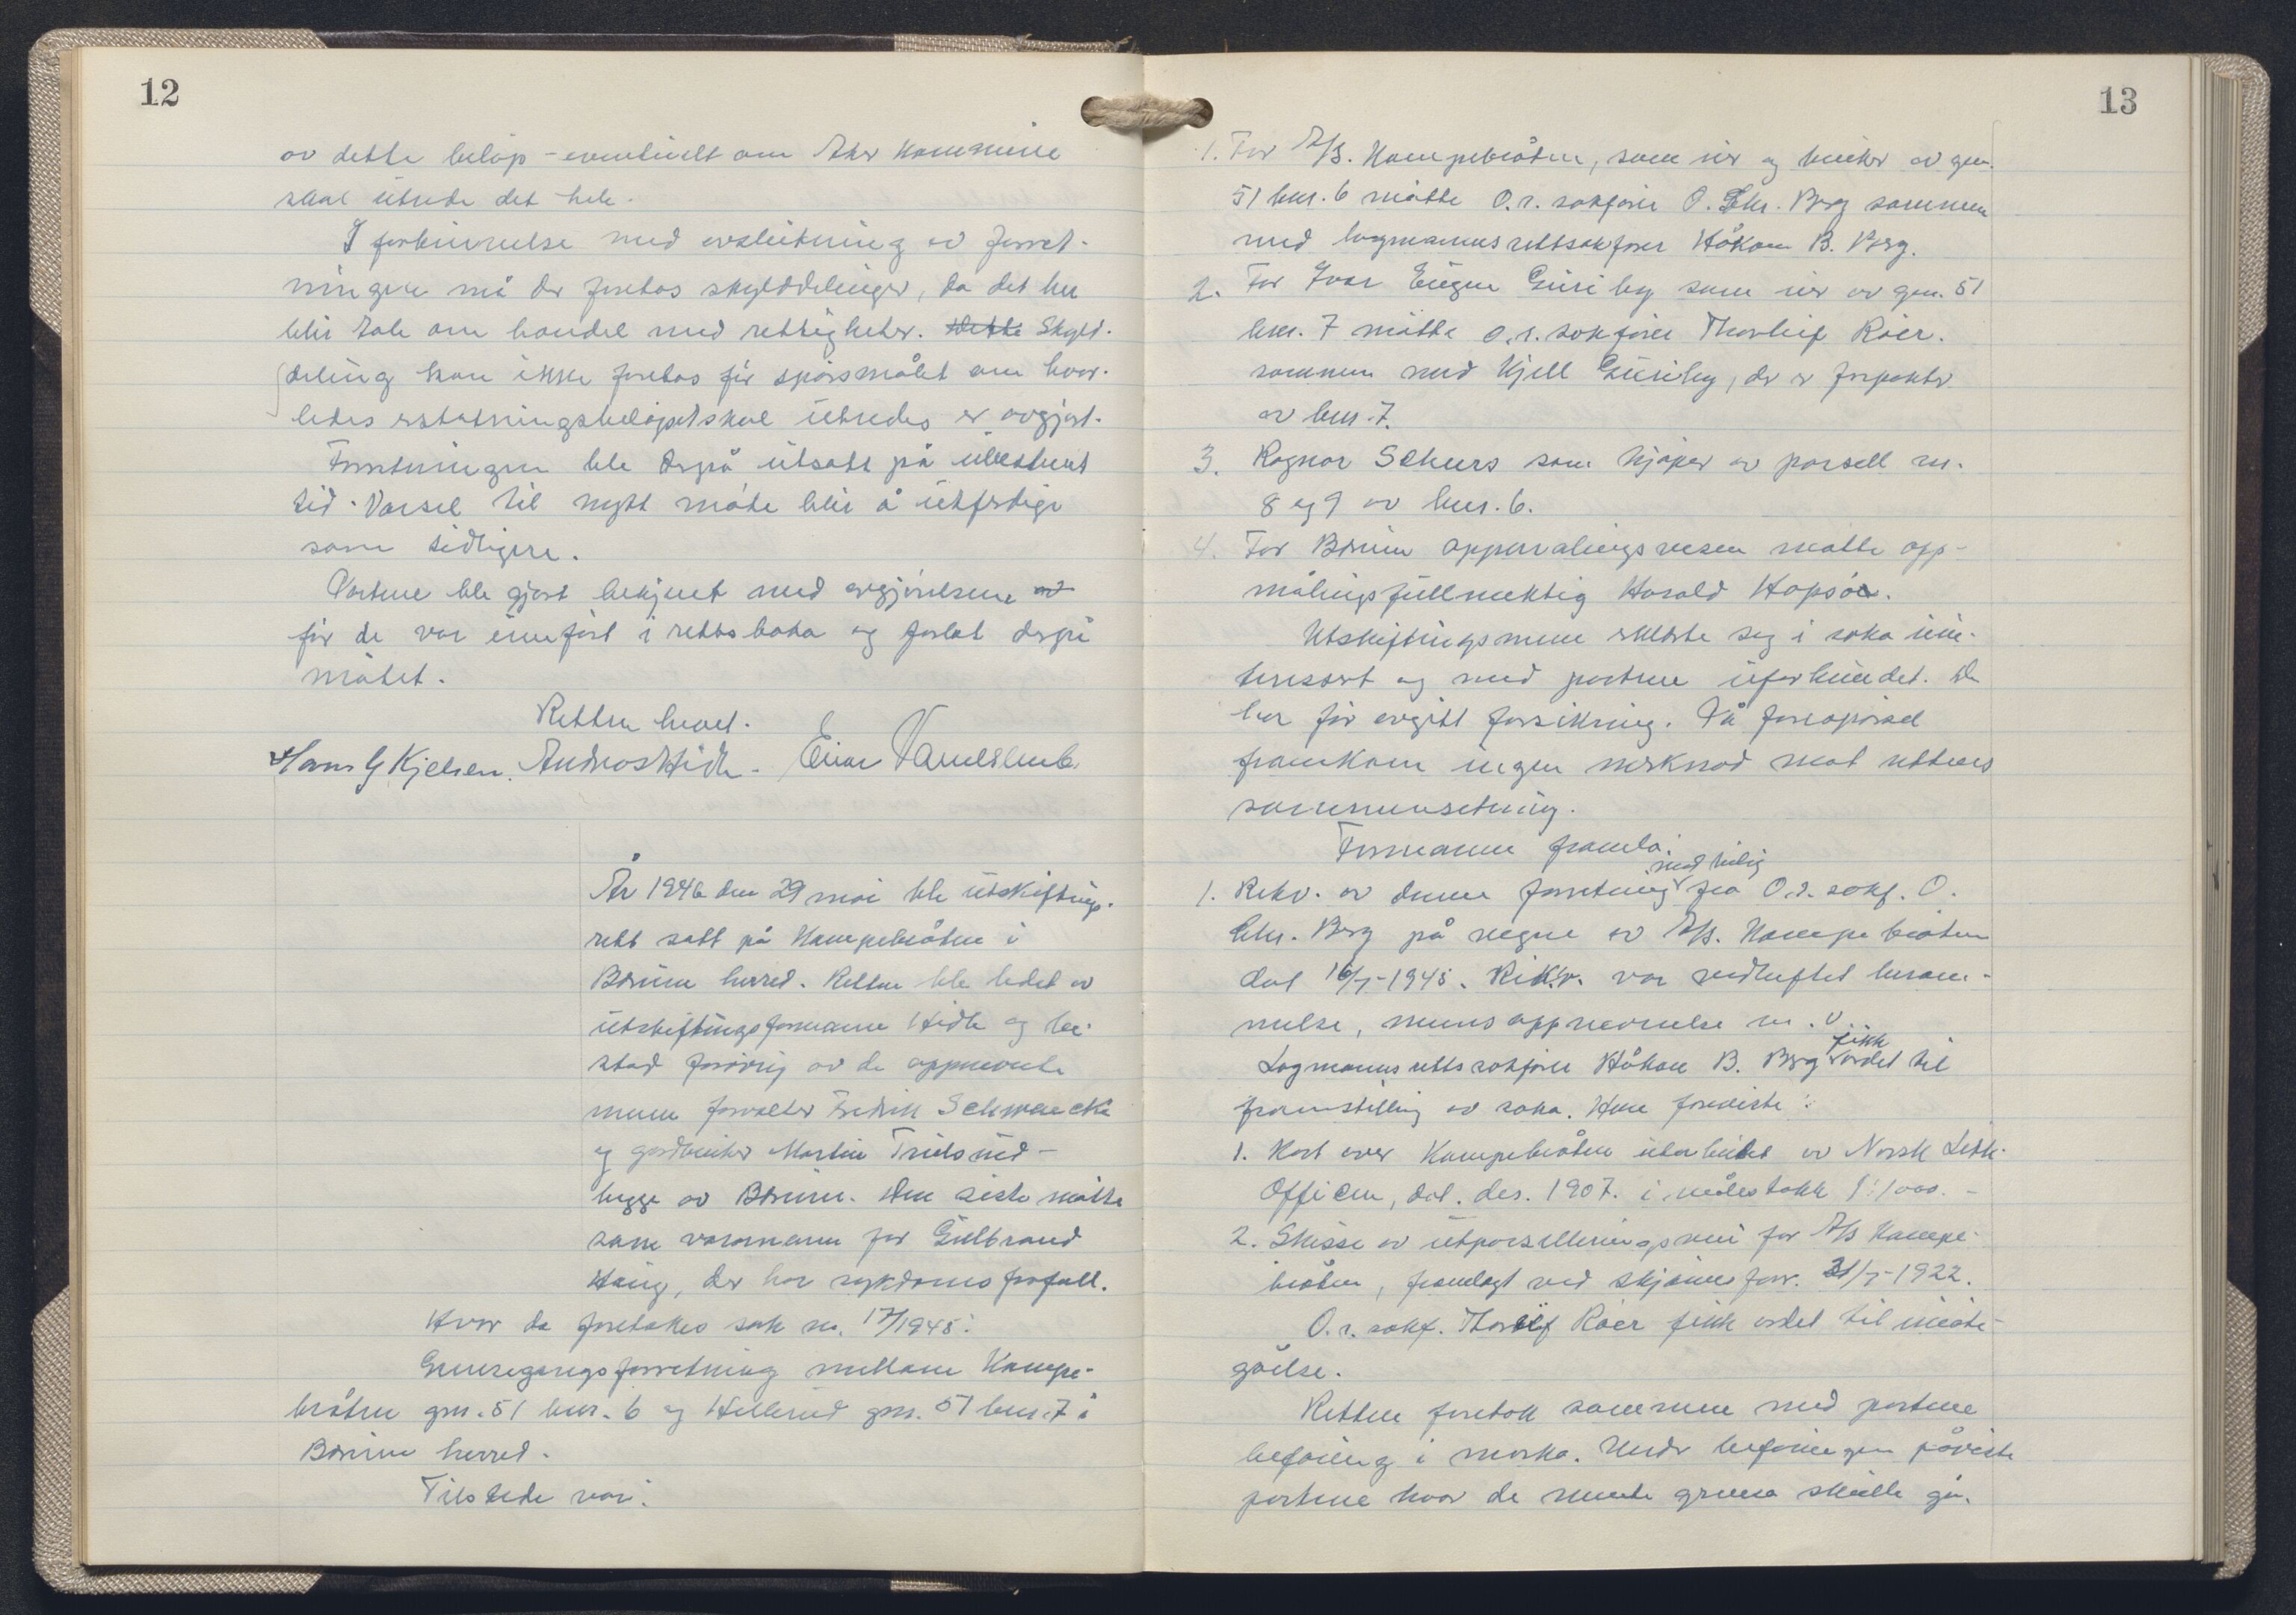 12
av dette beløp - eventuelt om Aker kommune
skal utrede det hele.
I forbinnelse med avsluttning av forret-
ningen må der foretas skylddelinger, da det her
blir tale om handel med rettigheter. Dette Skyld-
deling kan ikke foretas før spørsmålet om hvor-
ledes erstatningsbeløpet skal utredes er avgjort.
Forretningen ble derpå utsatt på ubestemt
tid. Varsel til nytt møte blir å utferdige
som tidligere.
Partene ble gjort bekjent med avgjørelsene
før de var innført i rettsboka og forlot derpå
møtet.
Retten hevet.
Hans G Kjelsen. Andreas Hidle. Einar
År 1946 den 29 mai ble utskiftings-
rett satt på Kampebråten i
Bærum herred. Retten ble ledet av
utskiftingsformann Hidle og be-
stod forøvrig av de oppnevnte
menn forvalter Fredrik Schwencke
og gårdbruker Martin Trulsrud -
begge av Bærum. Den siste møtte
som varamann for Gulbrand
Haug, der har sykdomsforfall.
Hvor da foretakes sak nr. 17/1945:
Grensegangsforretning mellom Kampe-
bråten gnr. 51 bnr. 6 og Hellerud gnr. 51 bnr. 7 i
Bærum herred.
Tilstede var:
13
1. For A/S. Kampebråten, som eier og bruker av gnr.
51 bnr. 6 møtte O.r. sakfører O. Chr. Berg sammen
med lagmannsrettsakfører Håkon B. Berg.
2. For Ivar Eugen Guriby som eier av gnr. 51
bnr. 7 møtte o.r. sakfører Thorleif Röer.
sammen med Kjell Guriby, der er forpakter
av bnr. 7.
3. Ragnar Schurs som kjøper av parsell nr.
8 og 9 av bnr. 6.
4. For Bærum oppmålingsvesen møtte opp-
målingsfullmektig Harald Hopsö.
Utskiftingsmenn erklærte seg i saka uin-
teressert og med partene uforbundet. De
har før avgitt forsikring. På forespørsel
framkom ingen merknad mot rettens
sammensetning.
Formannen framla:
med bilag
1. Rekv. av denne forretning fra O.r. sakf. O.
Chr. Berg på vegne av A/S. Kampebråten
dat 16/7-1945. Rekv. var vedheftet beram-
melse, mennsoppnevnelse m.v.
fikk
Lagmannsrettssakfører Håkon B. Berg ordet til
framstilling av saka. Han foreviste:
1. Kart over Kampebråten utarbeidet av Norsk Lith.
Officin, dat. des. 1907. i målestokk 1:1000. -
2. Skisse av utparselleringsvei for A/S Kampe-
bråten, framlagt ved skjønnsforr. 31/7-1922.
O.r. sakf. Thorleif Röer fikk ordet til imøte-
gåelse.
Retten foretok sammen med partene
befaring i marka. Under befaringen påviste
partene hvor de mente grensa skulle gå.